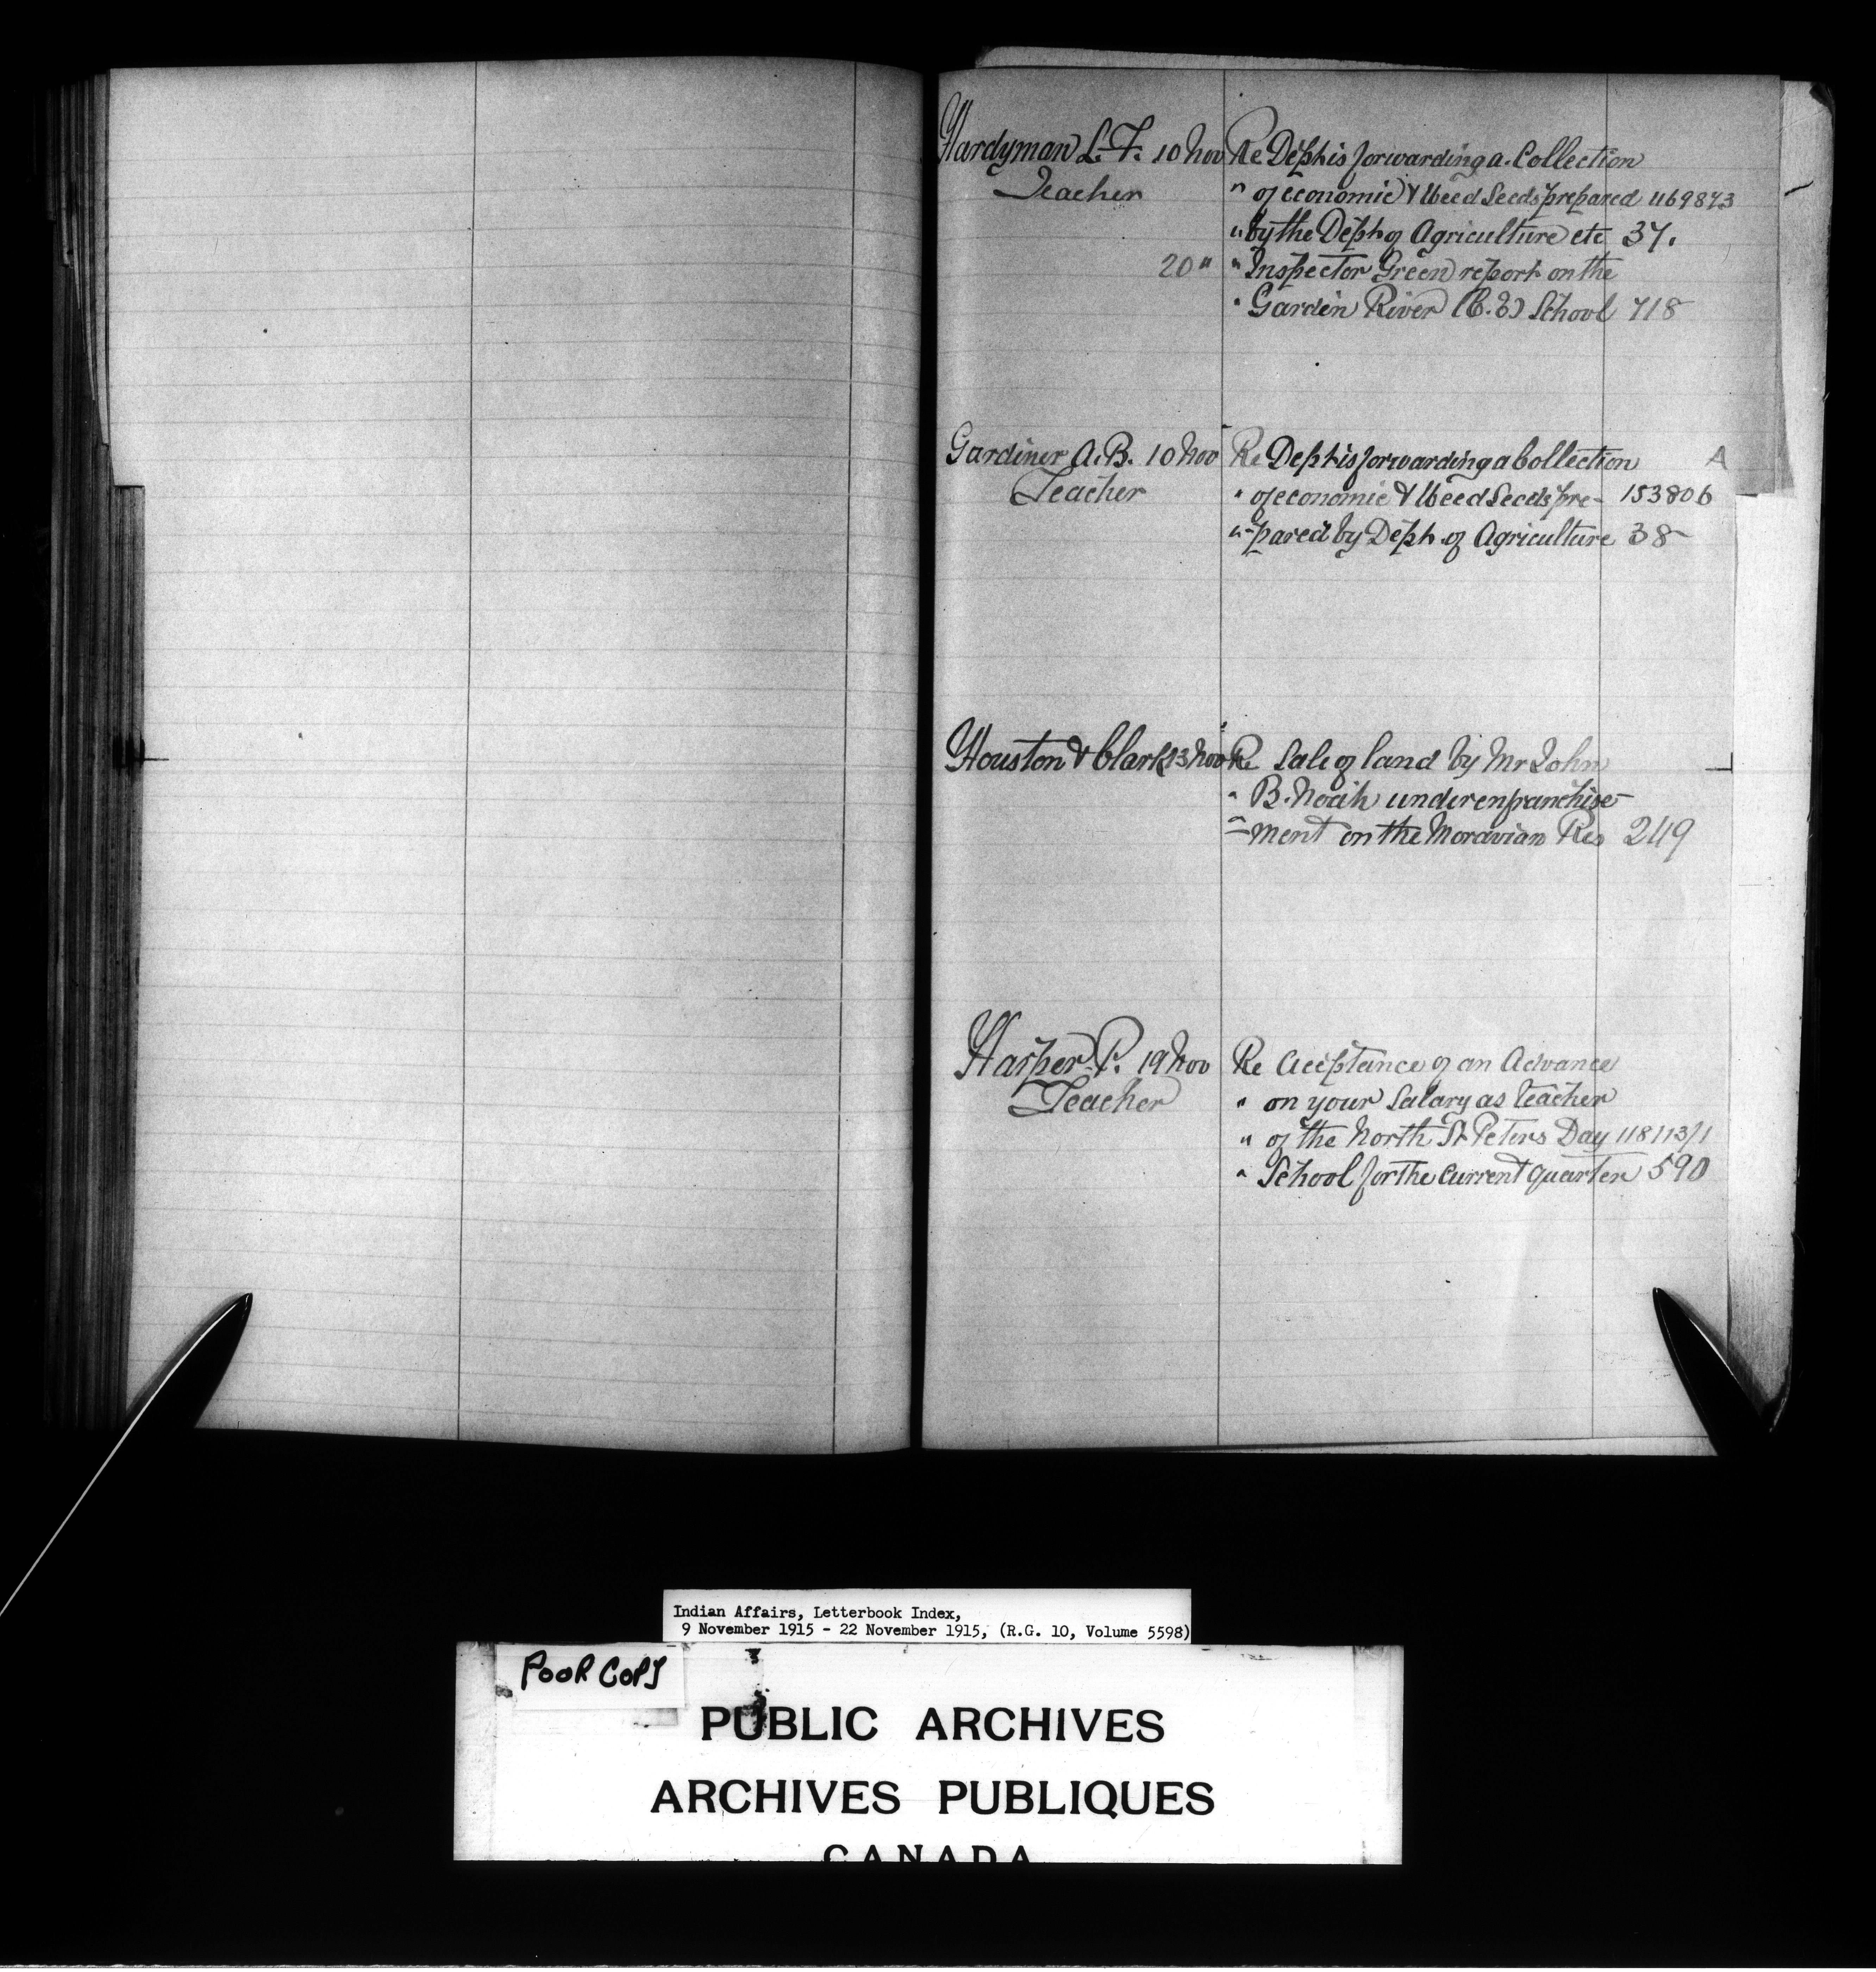 Hardyman L. F. 10 Nov Re Dept is forwarding a Collection
Teacher " of economic & Weed Seeds prepared 469873
" by the Dept of Agriculture etc 37.
20 " " Inspector Green report on the
" Garden River (C.E) School 718
Gardiner A. B. 10 Nov Re Dept is forwarding a Collection A
Teacher " of economic & Weed Seeds pre- 153806
" -pared by Dept. of Agriculture 38
Houston & Clark 13 Nov Re Sale of land by Mr John
" B. Noah under enfranchise-
" -ment on the Moravian Res 249
Harper P. 19 Nov Re Acceptance of an Advance
Teacher " on your Salary as teacher
" of the North St Peters Day 118113/1
" School for the current quarter 590
Indian Affairs, Letterbook Index,
9 November 1915 - 22 November 1915, (R.G. 10, Volume 5598)
POOR COPY
PUBLIC ARCHIVES
ARCHIVES PUBLIQUES
CANADA